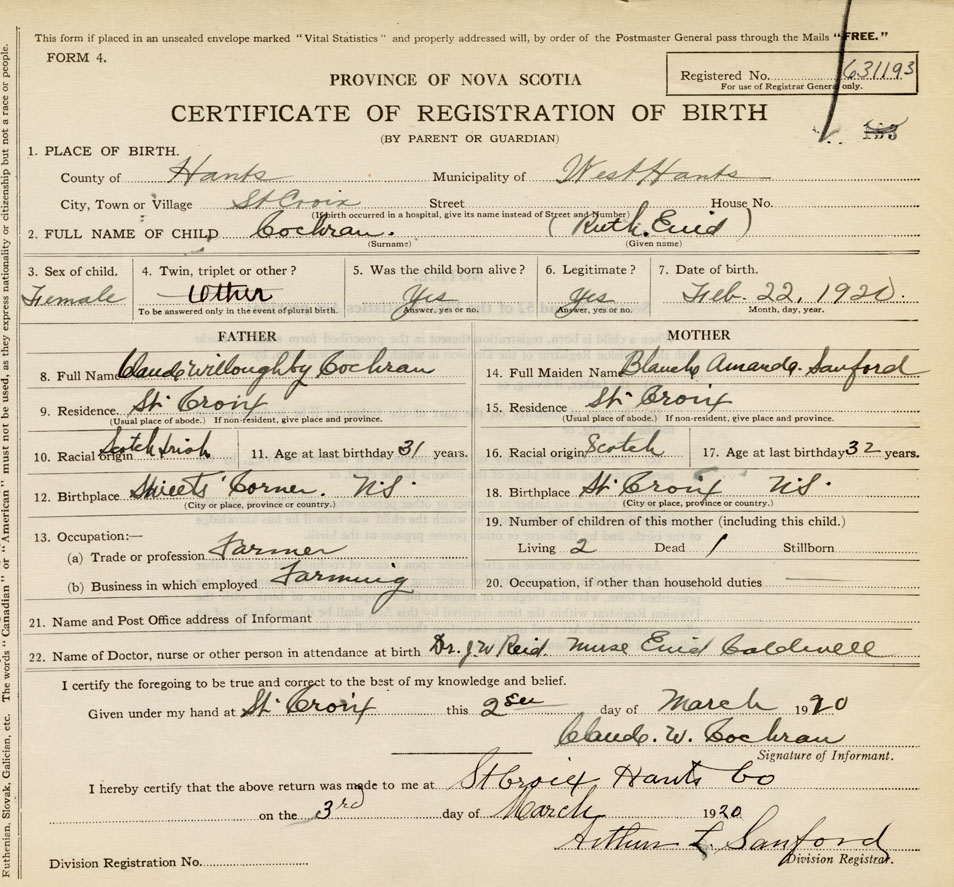 This form if placed in an unsealed envelope marked "Vital Statistics" and properly addressed will, by order of the Postmaster General pass through the Mails "FREE."
FORM 4.
Registered No. 631193
For use of Registrar General only.
PROVINCE OF NOVA SCOTIA
CERTIFICATE OF REGISTRATION OF BIRTH
(BY PARENT OR GUARDIAN)
1. PLACE OF BIRTH.
County of Hants Municipality of West Hants
City, Town or Village St Croix Street House No.
(If birth occurred in a hospital, give its name instead of Street and Number)
2. FULL NAME OF CHILD Cochran. (Ruth. Enid)
(Surname) (Given name)
3. Sex of child. 4. Twin, triplet or other? 5. Was the child born alive? 6. Legitimate? 7. Date of birth.
Female Other Yes Yes Feb. 22, 1920.
To be answered only in the event of plural birth. Answer, yes or no. Answer, yes or no. Month, day, year.
FATHER MOTHER
8. Full Name Claude Willoughby Cochran 14. Full Maiden Name Blanche Amanda. Sanford
9. Residence St. Croix 15. Residence St. Croix
(Usual place of abode.) If non-resident, give place and province. (Usual place of abode.) If non-resident, give place and province.
10. Racial origin Scotch Irish 11. Age at last birthday 31 years. 16. Racial origin Scotch 17. Age at last birthday 32 years.
12. Birthplace Sweets Corner. N.S. 18. Birthplace St. Croix N.S.
(City or place, province or country.) (City or place, province or country.)
13. Occupation:— 19. Number of children of this mother (including this child.)
(a) Trade or profession Farmer Living 2 Dead 1 Stillborn
(b) Business in which employed Farming 20. Occupation, if other than household duties
21. Name and Post Office address of Informant
22. Name of Doctor, nurse or other person in attendance at birth Dr. J W Reid. Nurse Enid Caldwell
I certify the foregoing to be true and correct to the best of my knowledge and belief.
Given under my hand at St. Croix this day of March 1920
Claude. W. Cochran
Signature of Informant.
I hereby certify that the above return was made to me at St Croix Hants Co
on the 3rd day of March 1920
Arthur L. Sanford
Division Registrar.
Division Registration No.
Ruthenian, Slovak, Galician, etc. The words "Canadian" or "American" must not be used, as they express nationality or citizenship but not a race or people.